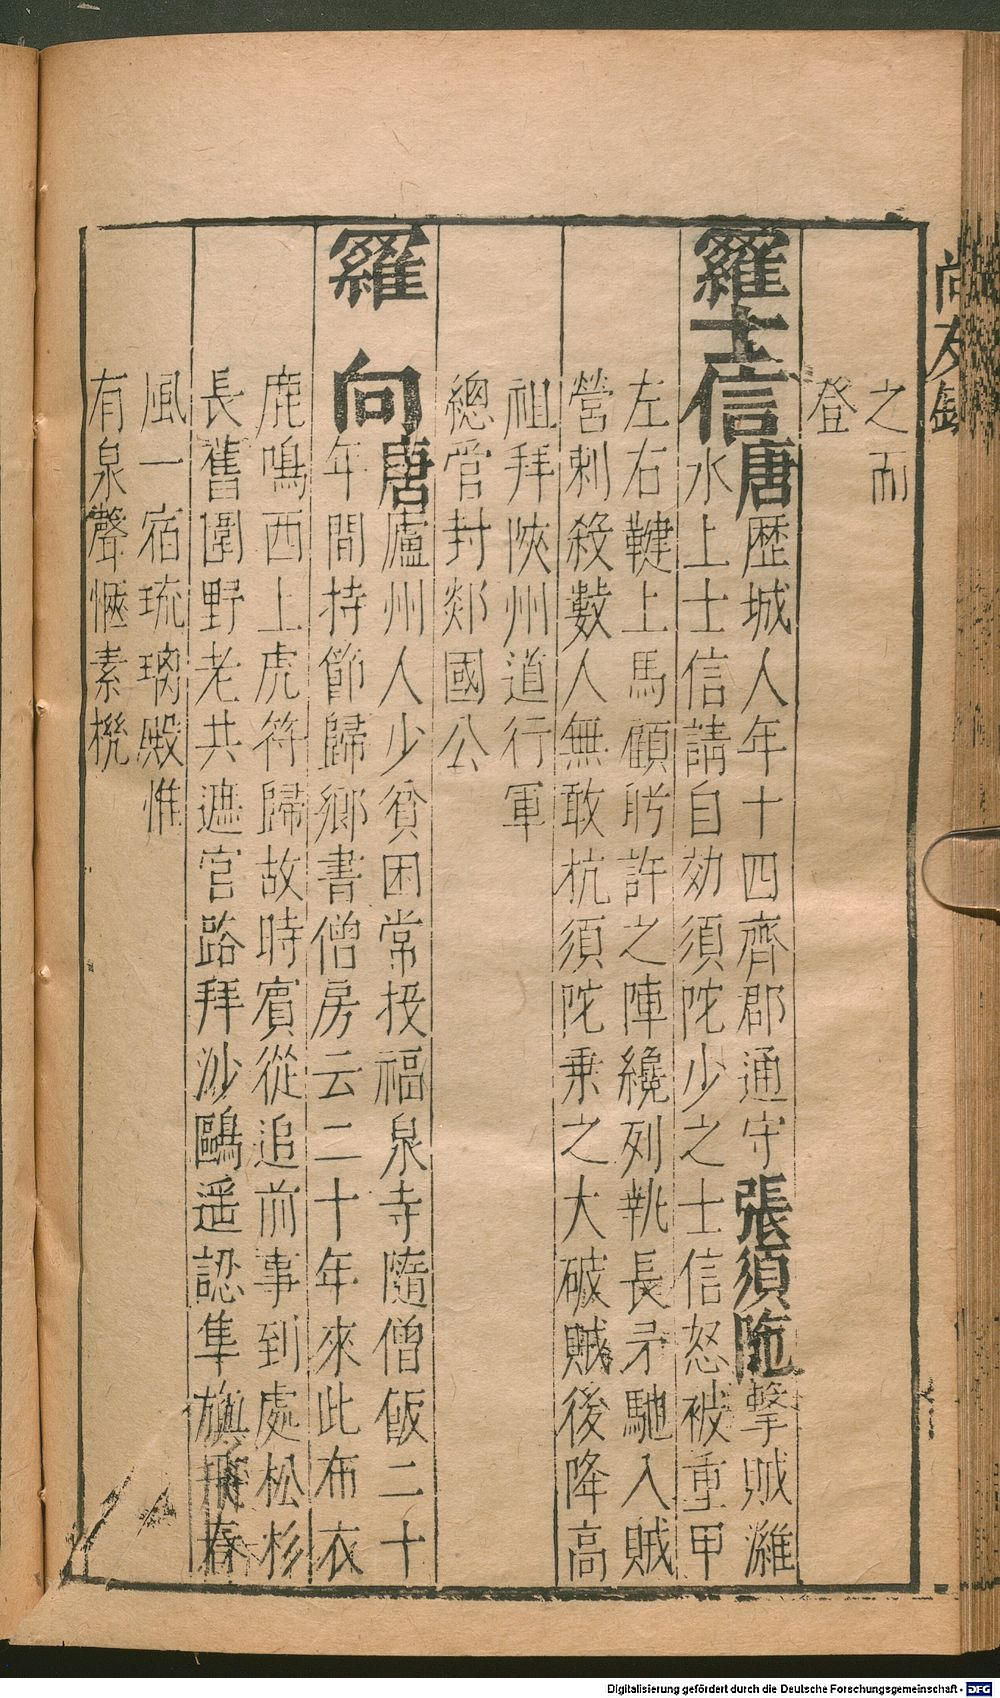 尚友錄
之而
登
羅士信唐歷城人年十四齊郡通守張須陁擊賊濰
水上士信請自効須陀少之士信怒被重甲
左右鞬上馬顧眄許之陣纔列執長矛馳入賊
營刺殺數人無敢抗須陀乗之大破賊後降高
祖拜陜州道行軍
總官封郯國公
羅向唐廬州人少貧困常投福泉寺隨僧飯二十
年間持節歸鄉書僧房云二十年來此布衣
鹿鳴西上虎符歸故時賓從追前事到處松杉
長舊圍野老共遮官路拜沙鷗遥認隼旟飛春
風一宿琉璃殿惟
有泉聲愜素機
Digitalisierung gefördert durch die Deutsche Forschungsgemeinschaft - DFG